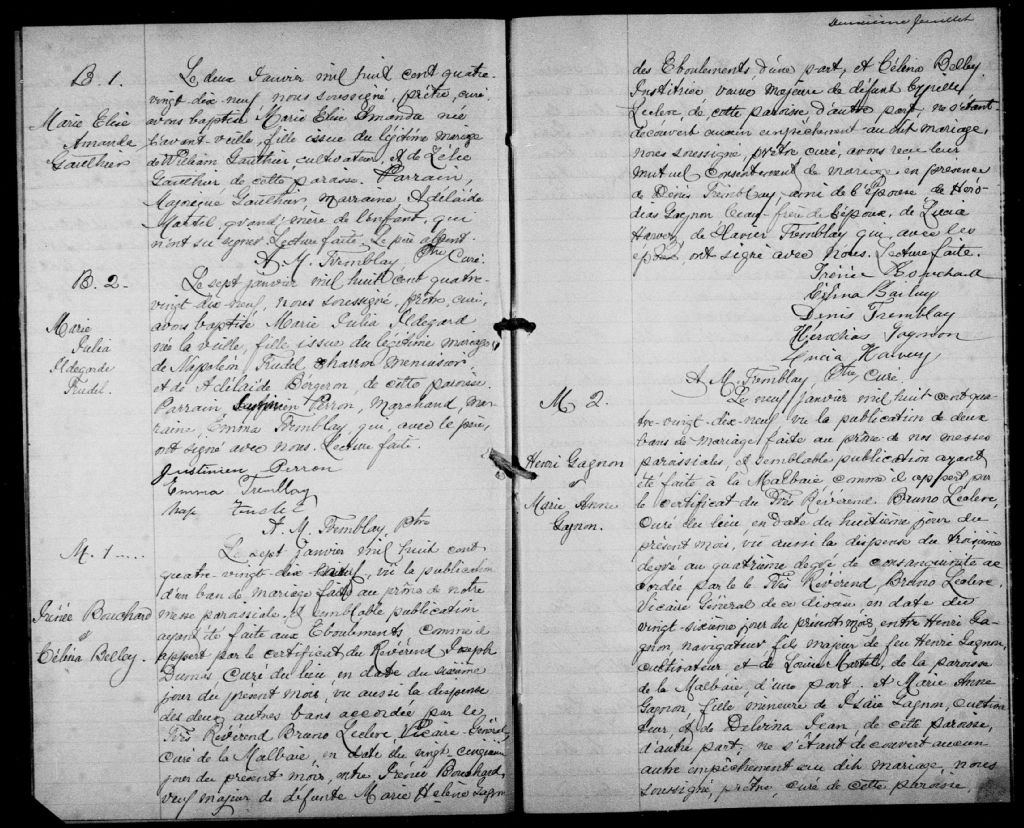 B. 1.
Marie Elise
Amanda
Gaulthier
Le deux Janvier mil huit cent quatre-
vingt-dix-neuf nous soussigné, prêtre, curé,
avons baptisé Marie Elise Amanda née
l'avant veille, fille issue du légitime mariage
de William Gaulthier cultivateur, et de Zélie
Gaulthier de cette paroisse. Parrain,
Gaulthier, marraine Adélaide
Martel, grand' mère de l'enfant, qui
n'ont su signer. Lecture faite. Le père absent.
A. M. Tremblay Ptre Curé.
B. 2.
Marie
Julia
Ildegarde
Trudel.
Le sept janvier mil huit cent quatre-
vingt dix-neuf, nous soussigné, prêtre, curé,
avons baptisé Marie Julia Ildegard
née la veille, fille issue du légitime mariage
de Napoléon Trudel charron menuisier
et de Adélaide Bergeron, de cette paroisse.
Parrain, Perron, Marchand, mar-
raine, Emma Tremblay, qui, avec le père,
ont signé avec nous. Lecture faite.
Justinien Perron
Emma Tremblay
Nap
A. M. Tremblay Ptre
M. 1
Irénée Bouchard
&
Célina Belley.
Le sept janvier mil huit cent
quatre-vingt-dix-neuf, vu la publication
d'un ban de mariage faite au prône de notre
messe paroissiale, et semblable publication
ayant été faite aux Eboulements comme il
appert par le certificat du Révérend Joseph
Dumas Curé du lieu en date du sixième
jour du présent mois, vu aussi la dispense
des deux autres bans accordée par le
Très Révérend Bruno Leclerc Vicaire Général,
curé de la Malbaie, en date du vingt cinquième
jour du présent mois, entre Irénée Bouchard,
veuf majeur de défunte Marie Helène Gagnon
Deuxième feuillet
des Eboulements d'une part, et Célina Belley
Institrice veuve majeure de défunt Cyrille
Leclerc, de cette paroisse, d'autre part, ne s'étant
découvert aucun empêchement au dit mariage,
nous soussigné, prêtre curé, avons reçu leur
mutuel consentement de mariage, en présence
de Denis Tremblay, ami de l'épouse, de Héro-
dias Gagnon beau-frère de l'époux, de Lucia
Harvey, de Xavier Tremblay qui, avec les
époux, ont signé avec nous. Lecture faite.
Irénée Bouchard
Bailey
Denis Tremblay
Hérodias Gagnon
Lucia Harvey
A. M. Tremblay, Ptre, Curé.
M 2.
Henri Gagnon
&
Marie Anne
Gagnon.
Le neuf Janvier mil huit cent qua-
tre-vingt-dix-neuf vu la publication de deux
bans de mariage faite au prône de nos messes
paroissiales, et semblable publication ayant
été faite à la Malbaie comme il appert par
le certificat du Très Révérend Bruno Leclerc,
Curé du lieu en date du huitième jour du
présent mois, vu aussi la dispense du troisième
degré au quatrième degré de consanguinité ac-
cordée par le le Très Révérend, Bruno Leclerc
Vicaire Général de ce diocèse en date du
vingt-sixième jour du présent mois, entre Henri Ga-
gnon, navigateur fils majeur de feu Henri Gagnon,
cultivateur et de Louise Martel, de la paroisse
de la Malbaie, d'une part. et Marie Anne
Gagnon, fille mineure de Isaïe Gagnon,
et de Delvina Jean, de cette paroisse,
d'autre part, ne s'étant découvert aucun
autre empêchement au dit mariage, nous
soussigné, prêtre, curé de cette paroisse,